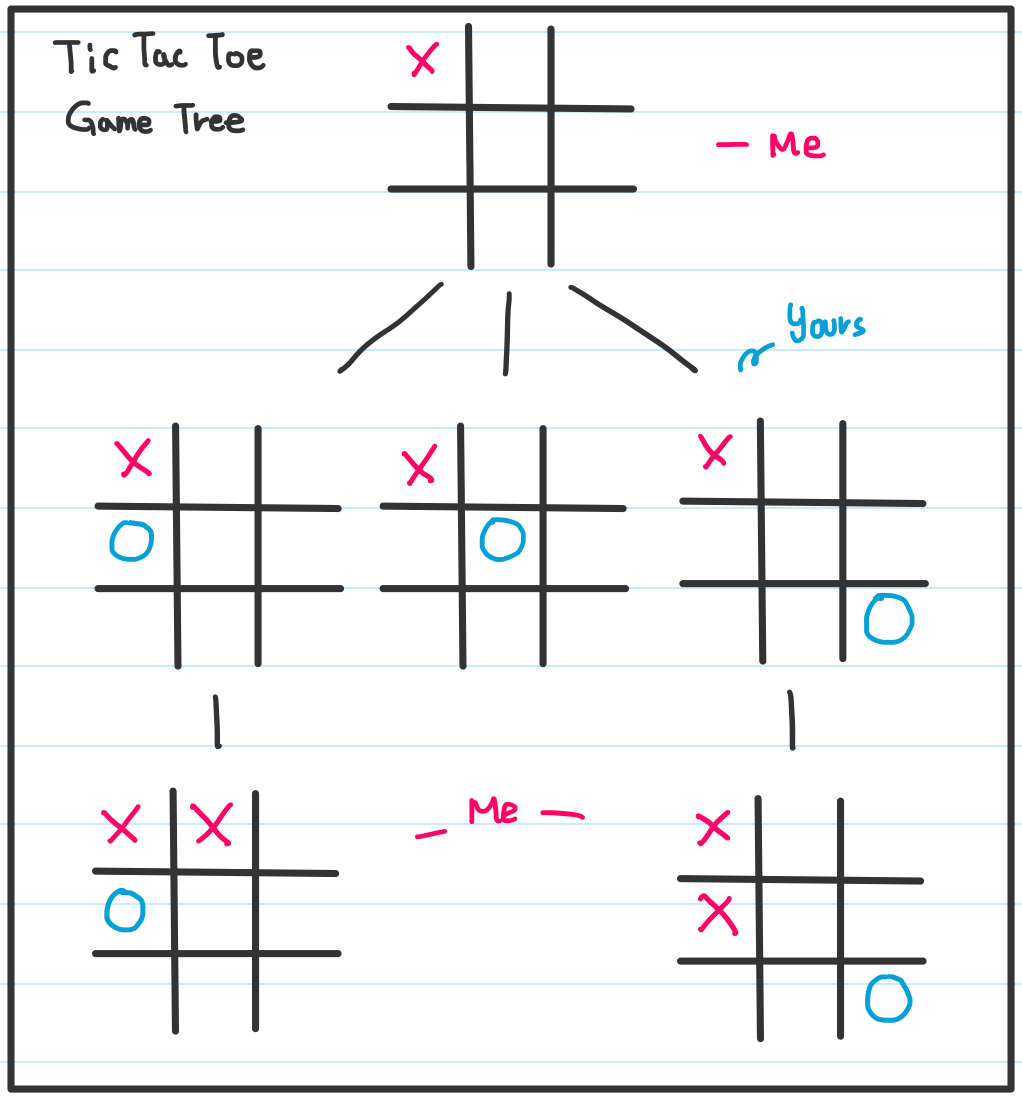 Tic Tac Toe
Game Tree
X
— Me
Yours
X
O
X
O
X
O
X X
O
— Me —
X
X
O